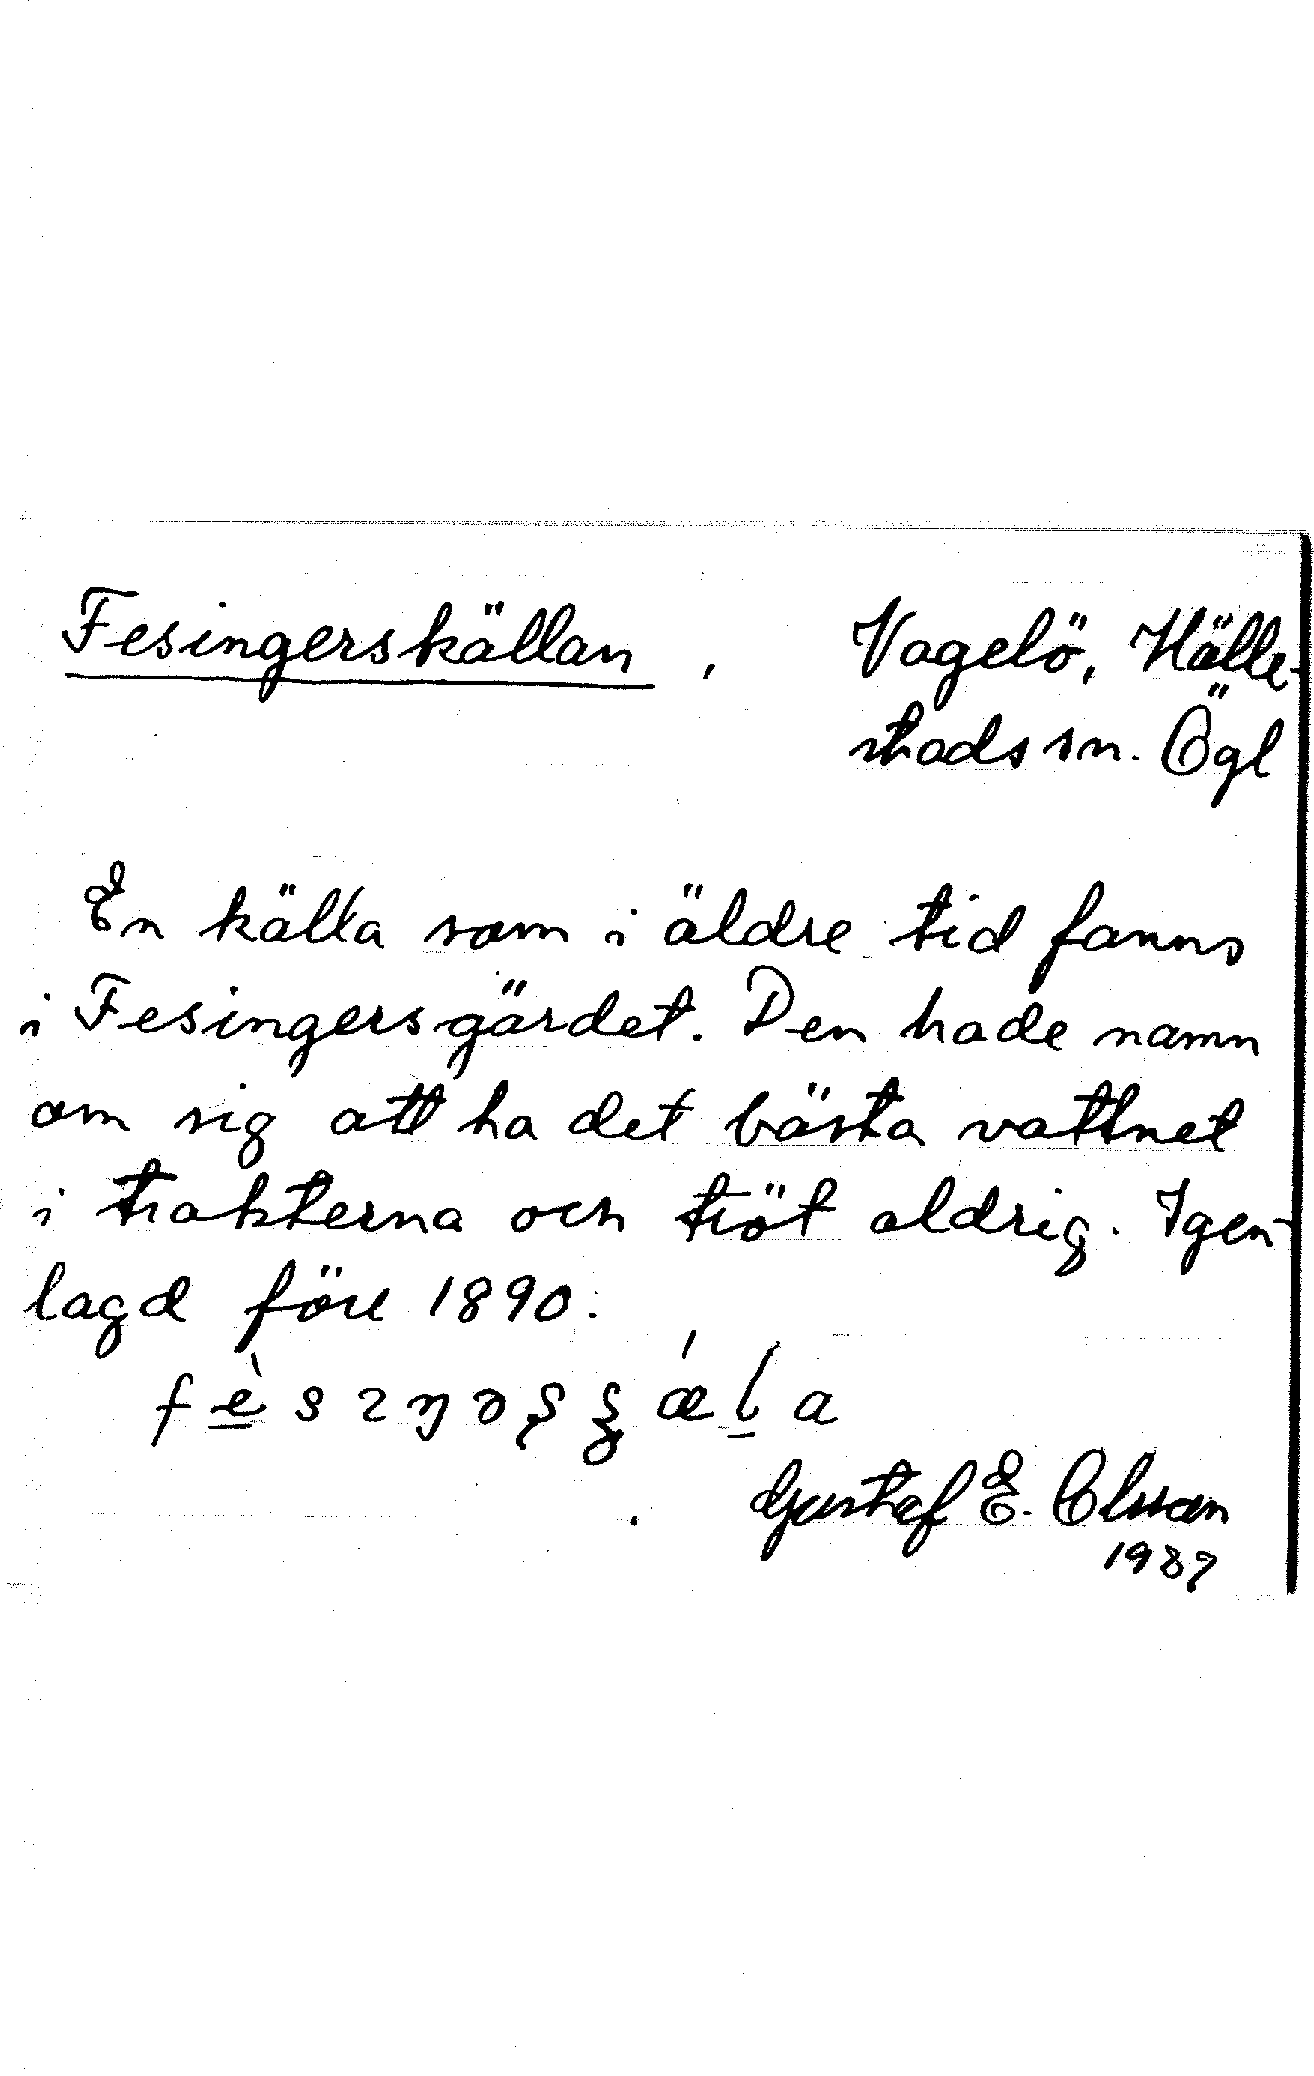 Fesingerskällan, Vagelö, Hälle-
stads sn. Ögl
En källa som i äldre tid fanns
i Fesingersgärdet. Den hade namn
om sig att ha det bästa vattnet
i trakterna och tröt aldrig. Igen-
lagd före 1890.
Gustaf E. Olsson